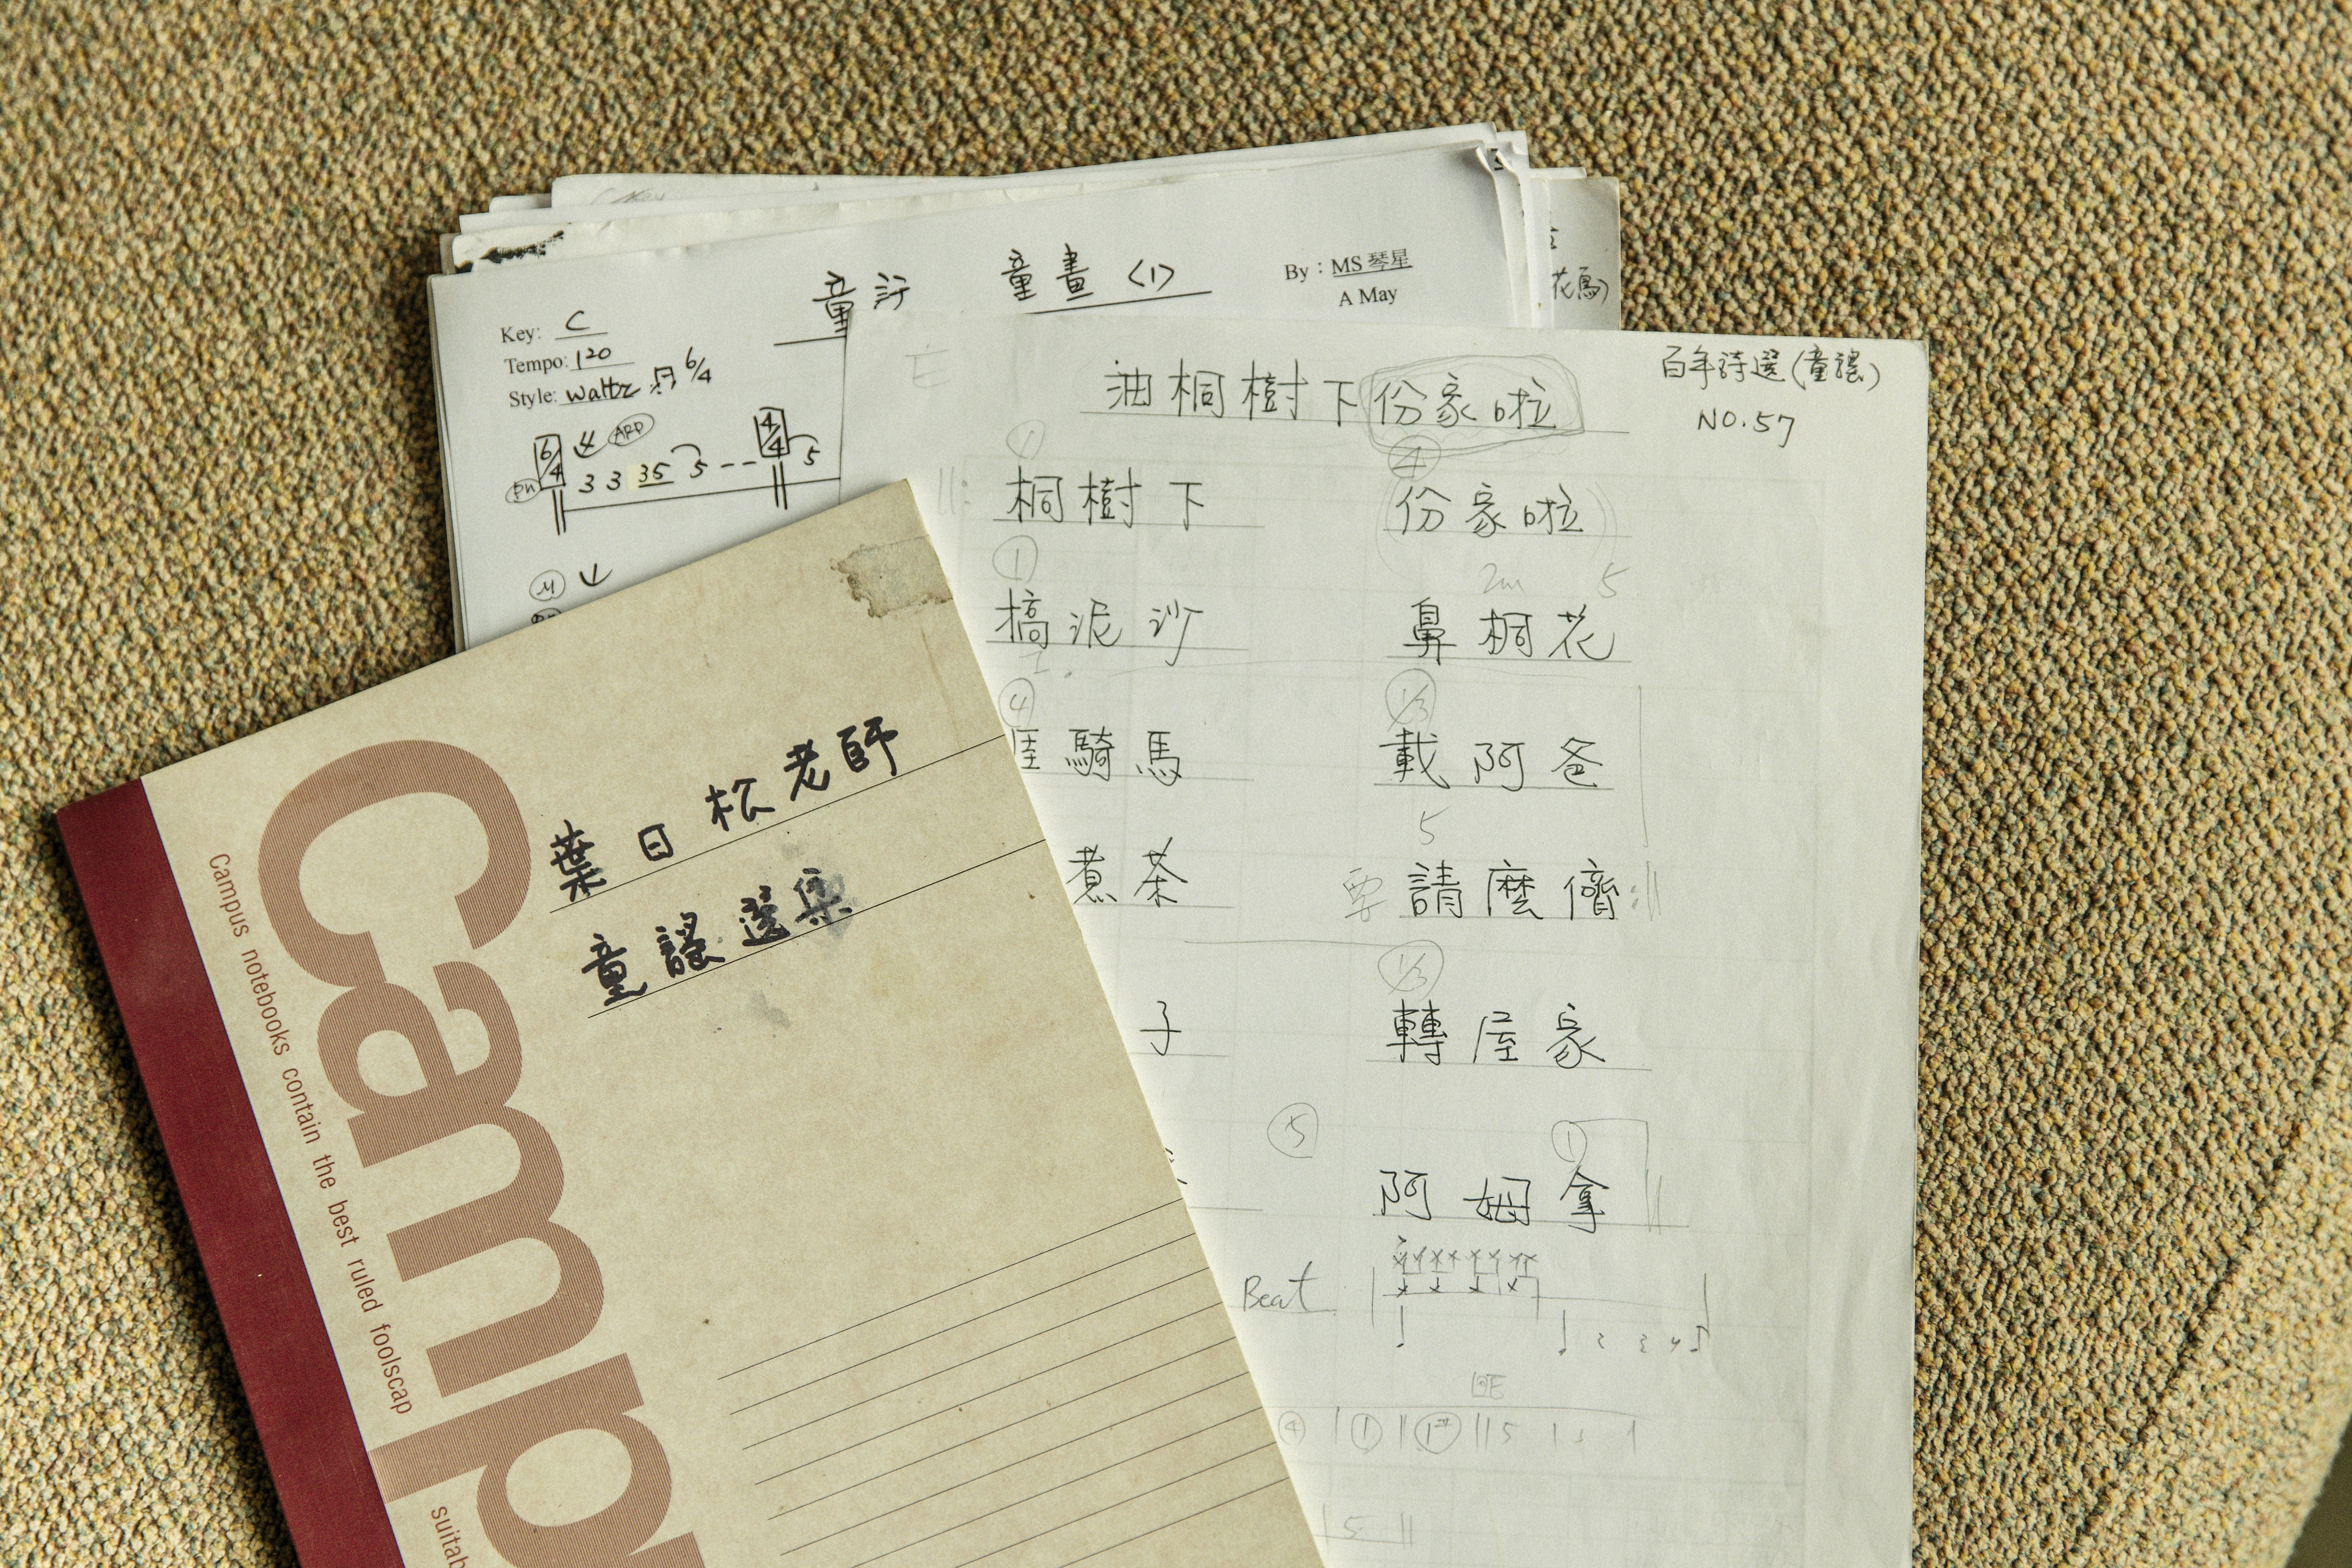 童詩 童畫〈1〉
By：MS 琴星
A May
Key: C
Tempo: 120
Style: Waltz 6/4
6/4 ARD 4/4
3 3 35 5 - - 5
花鳥)
百年詩選(童謠)
NO.57
油桐樹下份家啦
桐樹下 份家啦
搞泥沙 鼻桐花
騎馬 載阿爸
煮茶 請麼儕
子 轉屋家
阿姆拿
Beat
葉日松老師
童謠選集
Camp
Campus notebooks contain the best ruled foolscap
suitab